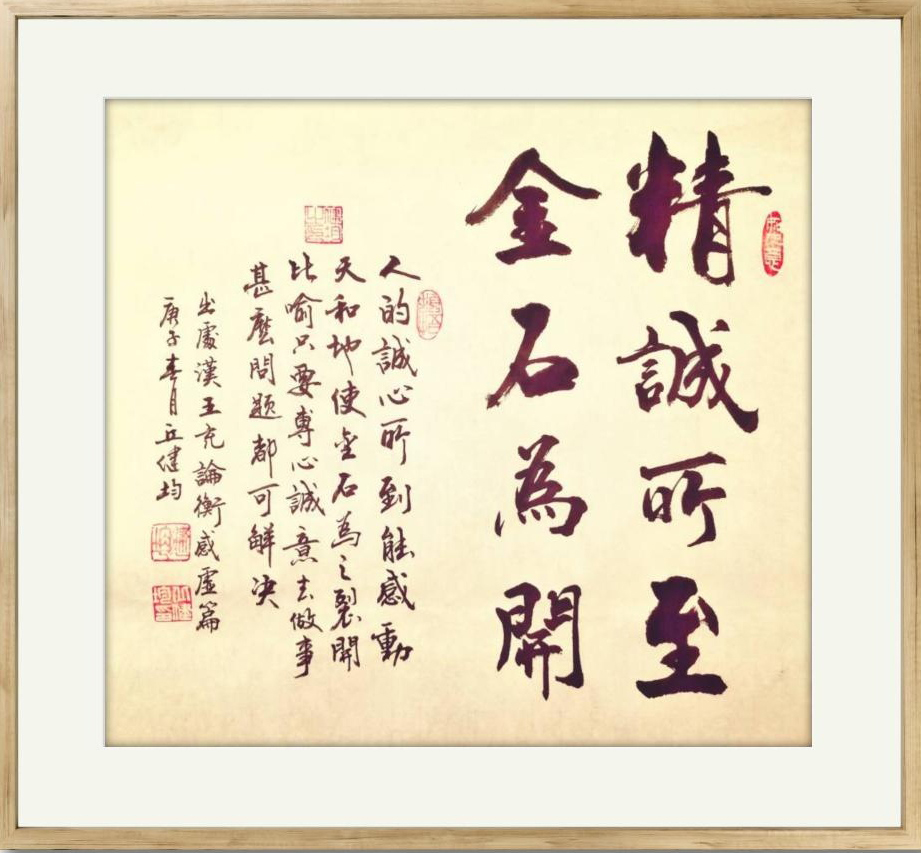 精誠所至
金石為開
人的誠心所到能感動
天和地使金石為之裂開
比喻只要專心誠意去做事
甚麼問題都可解决
出處漢王充論衡感虛篇
庚子春月丘健均